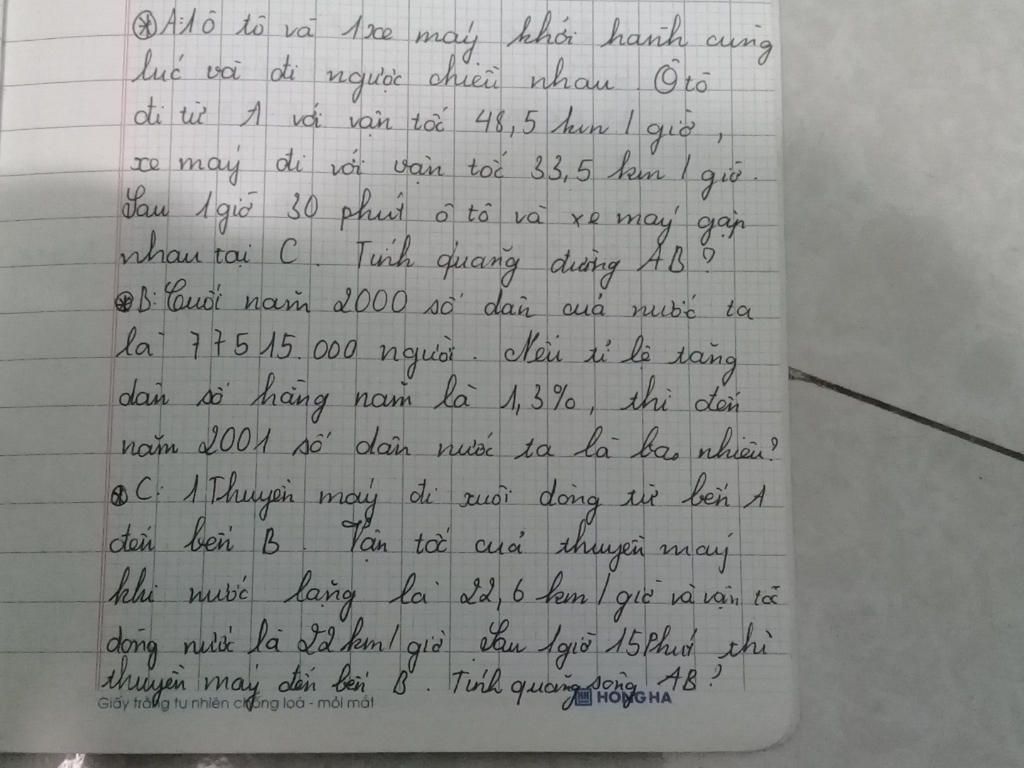 ⊛ A: 1 ô tô và 1 xe máy khởi hành cùng
lúc và đi ngược chiều nhau Ô tô
đi từ A với vận tốc 48,5 km / giờ,
xe máy đi với vận tốc 33,5 km / giờ.
Sau 1 giờ 30 phút ô tô và xe máy gặp
nhau tại C. Tính quãng đường AB?
⊛ B: Cuối năm 2000 số dân của nước ta
là 77515.000 người. Nếu tỉ lệ tăng
dân số hằng năm là 1,3%, thì đến
năm 2001 số dân nước ta là bao nhiêu?
⊛ C: 1 Thuyền máy đi xuôi dòng từ bến A
đến bến B. Vận tốc của thuyền máy
khi nước lặng là 22,6 km / giờ và vận tốc
dòng nước là 22 km / giờ Sau 1 giờ 15 Phút thì
thuyền máy đến bến B. Tính quãng sông AB?
Giấy trắng tự nhiên chống loá - mỏi mắt HONG HA